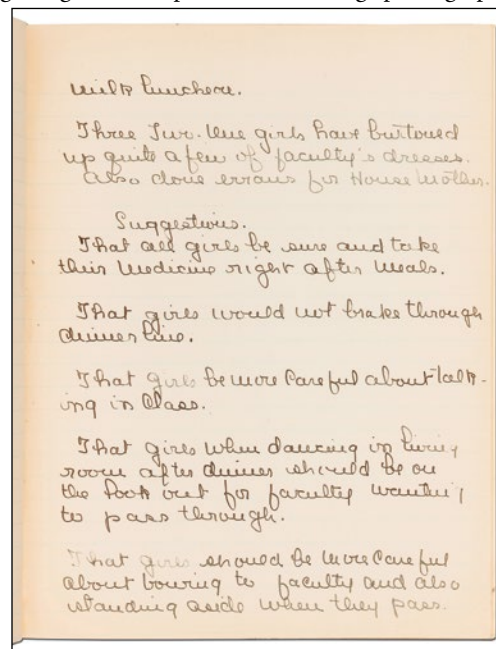 milk luncheon.
Three girls have buttoned
up quite a few of faculty's dresses.
also done errans for House Mother.
Suggestions.
That all girls be sure and take
their medicine right after meals.
That girls would not brake through
dinner line.
That girls be more careful about talk-
ing in class.
That girls when dancing in living
room after dinner should be on
the look out for faculty wanting
to pass through.
That girls should be more careful
about bowing to faculty and also
standing aside when they pass.